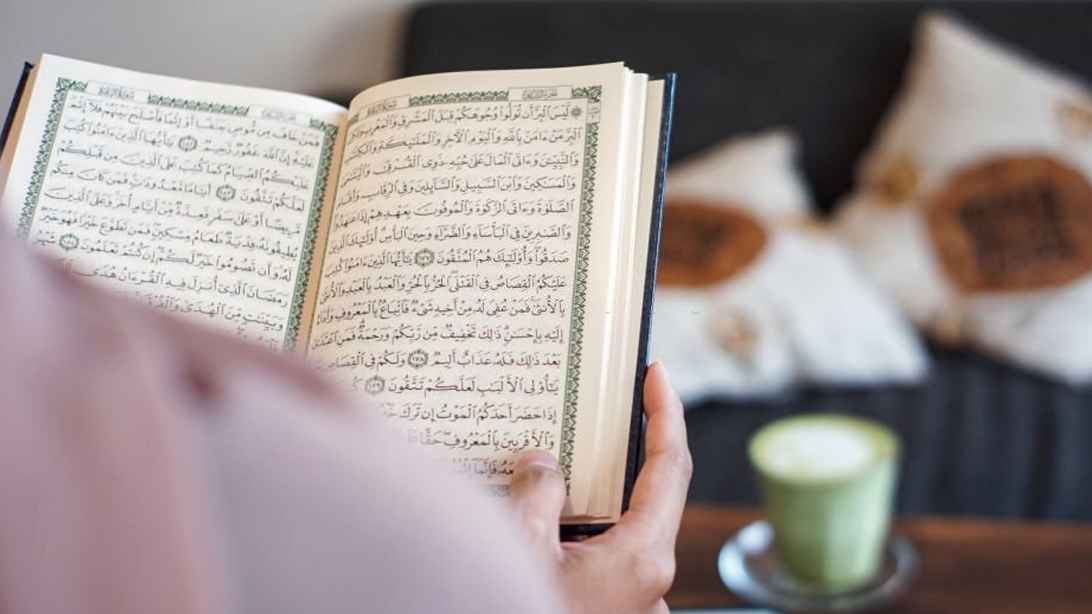 لَّيْسَ ٱلْبِرَّ أَن تُوَلُّوا۟ وُجُوهَكُمْ قِبَلَ ٱلْمَشْرِقِ وَٱلْمَغْرِبِ وَلَٰكِنَّ
ٱلْبِرَّ مَنْ ءَامَنَ بِٱللَّهِ وَٱلْيَوْمِ ٱلْءَاخِرِ وَٱلْمَلَٰٓئِكَةِ وَٱلْكِتَٰبِ
وَٱلنَّبِيِّۦنَ وَءَاتَى ٱلْمَالَ عَلَىٰ حُبِّهِۦ ذَوِى ٱلْقُرْبَىٰ وَٱلْيَتَٰمَىٰ
وَٱلْمَسَٰكِينَ وَٱبْنَ ٱلسَّبِيلِ وَٱلسَّآئِلِينَ وَفِى ٱلرِّقَابِ وَأَقَامَ
ٱلصَّلَوٰةَ وَءَاتَى ٱلزَّكَوٰةَ وَٱلْمُوفُونَ بِعَهْدِهِمْ إِذَا عَٰهَدُوا۟
وَٱلصَّٰبِرِينَ فِى ٱلْبَأْسَآءِ وَٱلضَّرَّآءِ وَحِينَ ٱلْبَأْسِ أُو۟لَٰٓئِكَ ٱلَّذِينَ
صَدَقُوا۟ وَأُو۟لَٰٓئِكَ هُمُ ٱلْمُتَّقُونَ ١٧٧ يَٰٓأَيُّهَا ٱلَّذِينَ ءَامَنُوا۟ كُتِبَ
عَلَيْكُمُ ٱلْقِصَاصُ فِى ٱلْقَتْلَى ٱلْحُرُّ بِٱلْحُرِّ وَٱلْعَبْدُ بِٱلْعَبْدِ وَٱلْأُنثَىٰ
بِٱلْأُنثَىٰ فَمَنْ عُفِىَ لَهُۥ مِنْ أَخِيهِ شَىْءٌ فَٱتِّبَاعٌۢ بِٱلْمَعْرُوفِ وَأَدَآءٌ
إِلَيْهِ بِإِحْسَٰنٍ ذَٰلِكَ تَخْفِيفٌ مِّن رَّبِّكُمْ وَرَحْمَةٌ فَمَنِ ٱعْتَدَىٰ
بَعْدَ ذَٰلِكَ فَلَهُۥ عَذَابٌ أَلِيمٌ ١٧٨ وَلَكُمْ فِى ٱلْقِصَاصِ
يَٰٓأُو۟لِى ٱلْأَلْبَٰبِ لَعَلَّكُمْ تَتَّقُونَ ١٧٩
إِذَا حَضَرَ أَحَدَكُمُ ٱلْمَوْتُ إِن تَرَكَ
وَٱلْأَقْرَبِينَ بِٱلْمَعْرُوفِ حَقًّا
فَإِنَّمَآ
فَمَنْ خَافَ مِن مُّوصٍ جَنَفًا أَوْ إِثْمًا فَأَصْلَحَ بَيْنَهُمْ فَلَآ إِثْمَ
عَلَيْهِ إِنَّ ٱللَّهَ غَفُورٌ رَّحِيمٌ ١٨٢ يَٰٓأَيُّهَا ٱلَّذِينَ ءَامَنُوا۟ كُتِبَ
عَلَيْكُمُ ٱلصِّيَامُ كَمَا كُتِبَ عَلَى ٱلَّذِينَ مِن قَبْلِكُمْ
لَعَلَّكُمْ تَتَّقُونَ ١٨٣ أَيَّامًا مَّعْدُودَٰتٍ فَمَن كَانَ مِنكُم
مَّرِيضًا أَوْ عَلَىٰ سَفَرٍ فَعِدَّةٌ مِّنْ أَيَّامٍ أُخَرَ وَعَلَى ٱلَّذِينَ
يُطِيقُونَهُۥ فِدْيَةٌ طَعَامُ مِسْكِينٍ فَمَن تَطَوَّعَ خَيْرًا فَهُوَ خَيْرٌ
لَّهُۥ وَأَن تَصُومُوا۟ خَيْرٌ لَّكُمْ إِن كُنتُمْ تَعْلَمُونَ ١٨٤
رَمَضَانَ ٱلَّذِىٓ أُنزِلَ فِيهِ ٱلْقُرْءَانُ هُدًى
وَبَيِّنَٰتٍ مِّنَ ٱلْهُدَىٰ وَٱلْفُرْقَانِ